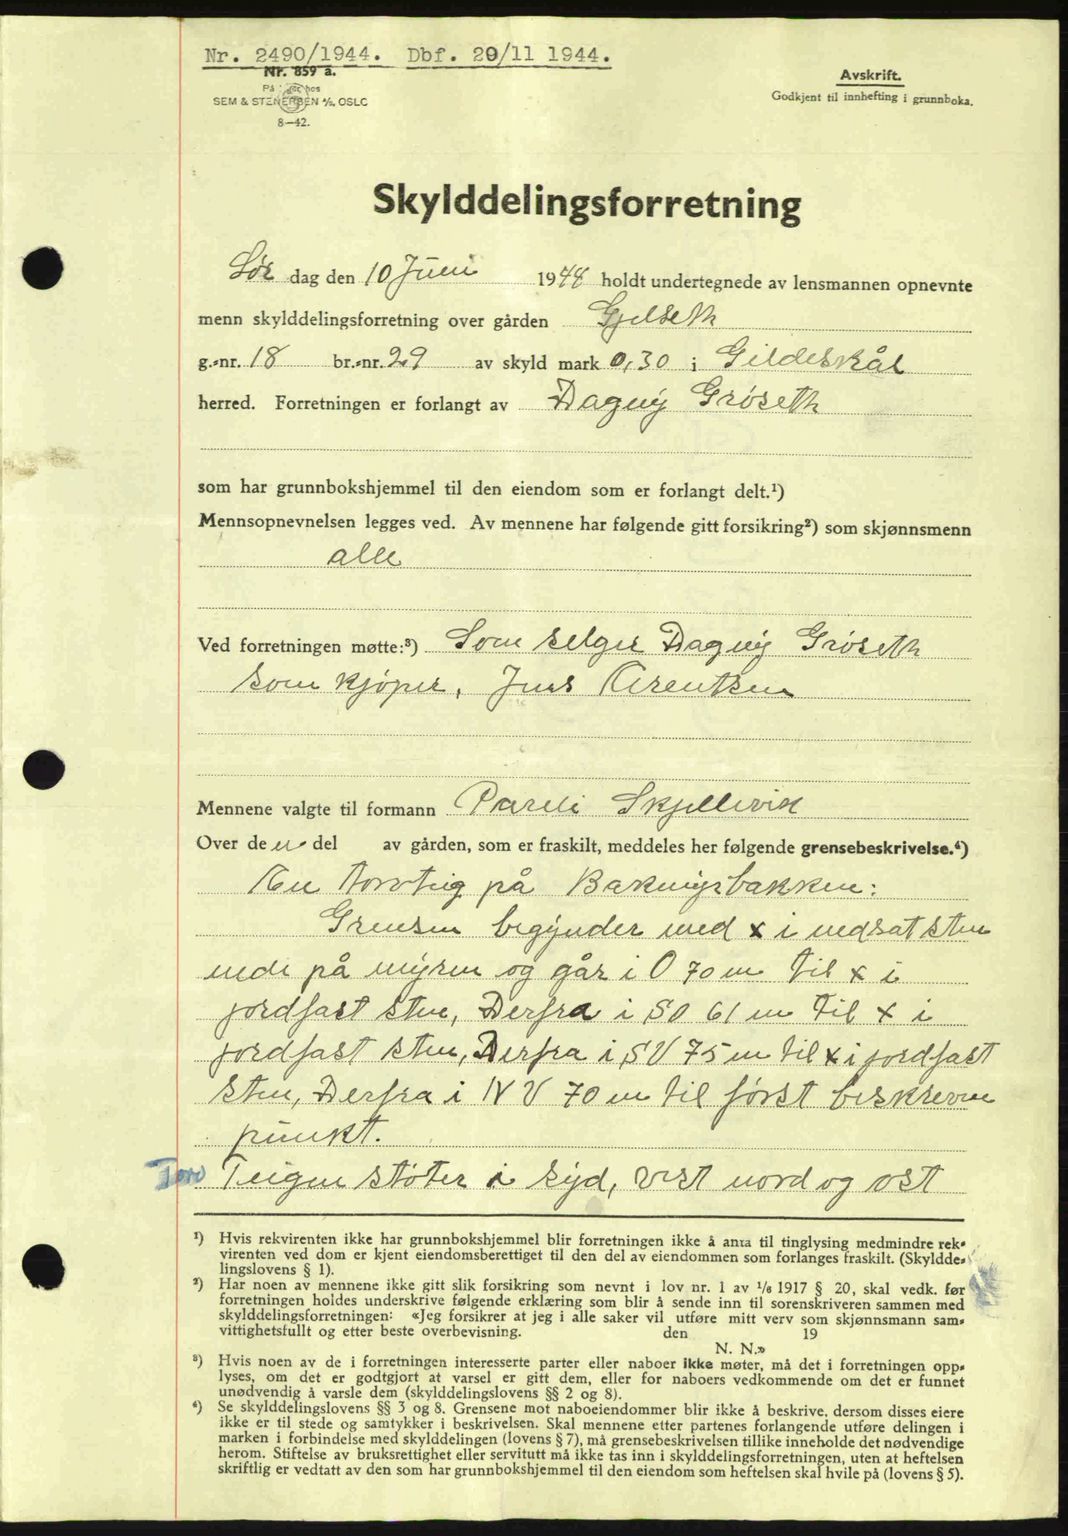 Nr. 2490/1944. Dbf. 20/11 1944.
Nr. 859 a.
SEM & STENERSEN A/S, OSLO
8-42.
Avskrift.
Godkjent til innhefting i grunnboka.
Skylddelingsforretning
Lør dag den 10 Juni 1944 holdt undertegnede av lensmannen opnevnte
menn skylddelingsforretning over gården Gjelseth
g.-nr. 18 br.-nr. 29 av skyld mark 0,30 i Gildeskål
herred. Forretningen er forlangt av Dagny Grøseth
som har grunnbokshjemmel til den eiendom som er forlangt delt.¹)
Mennsopnevnelsen legges ved. Av mennene har følgende gitt forsikring²) som skjønnsmenn
alle
Ved forretningen møtte:³) Som selger Dagny Grøseth
som kjøper, Jens Arentsen
Mennene valgte til formann Pareli Skjellvik
Over de n del av gården, som er fraskilt, meddeles her følgende grensebeskrivelse.⁴)
En torvteig på :
Grensen begynder med x i nedsat sten
nede på myren og går i O 70 m til x i
jordfast sten, Derfra i SO 61 m til x i
jordfast sten, Derfra i SV 75 m til x i jordfast
sten, Derfra i NV 70 m til først beskreven
punkt.
Torv Teigen støter i syd, vest nord og ost
¹) Hvis rekvirenten ikke har grunnbokshjemmel blir forretningen ikke å anta til tinglysing medmindre rek-
virenten ved dom er kjent eiendomsberettiget til den del av eiendommen som forlanges fraskilt. (Skyldde-
lingslovens § 1).
²) Har noen av mennene ikke gitt slik forsikring som nevnt i lov nr. 1 av 1/6 1917 § 20, skal vedk. før
forretningen holdes underskrive følgende erklæring som blir å sende inn til sorenskriveren sammen med
skylddelingsforretningen: «Jeg forsikrer at jeg i alle saker vil utføre mitt verv som skjønnsmann sam-
vittighetsfullt og etter beste overbevisning. den 19
N. N.»
³) Hvis noen av de i forretningen interesserte parter eller naboer ikke møter, må det i forretningen opp-
lyses, om det er godtgjort at varsel er gitt dem, eller for naboers vedkommende om det er funnet
unødvendig å varsle dem (skylddelingslovens §§ 2 og 8).
⁴) Se skylddelingslovens §§ 3 og 8. Grensene mot naboeiendommer blir ikke å beskrive, dersom disses eiere
ikke er til stede og samtykker i beskrivelsen. Skal mennene etter partenes forlangende utføre delingen i
marken i forbindelse med skylddelingen (lovens § 7), må grensebeskrivelsen tillike inneholde det nødvendige
herom. Stiftelse av bruksrettighet eller servitutt må ikke tas inn i skylddelingsforretningen, uten at heftelsen
skriftlig er vedtatt av den som har grunnbokshjemmel til den eiendom som heftelsen skal hvile på (lovens § 5).